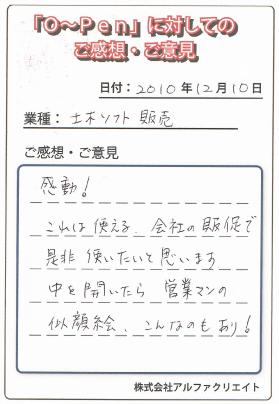 「O〜Pen」に対しての
ご感想・ご意見
日付：2010年12月10日
業種：土木ソフト販売
ご感想・ご意見
感動！
これは使える、会社の販促で
是非使いたいと思います
中を開いたら営業マンの
似顔絵、こんなのもあり！
株式会社アルファクリエイト